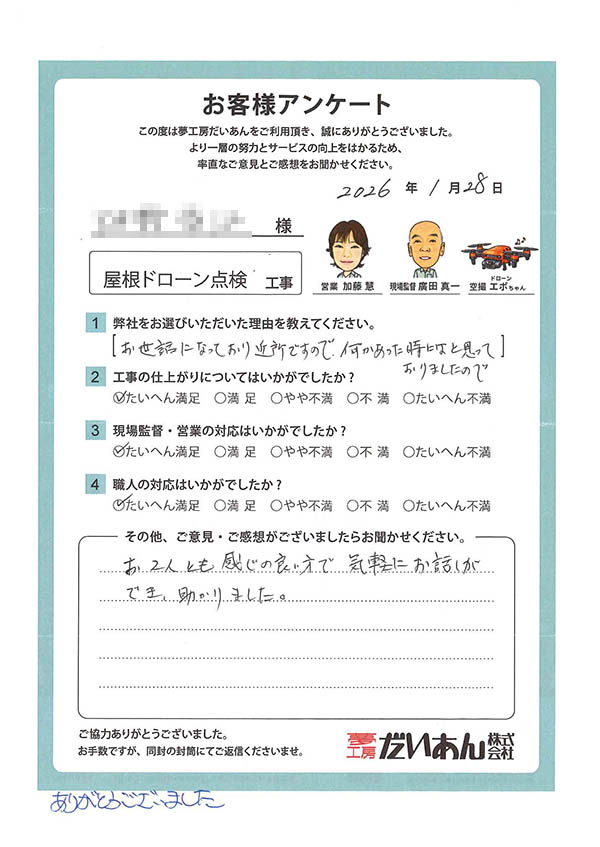 お客様アンケート
この度は夢工房だいあんをご利用頂き、誠にありがとうございました。
より一層の努力とサービスの向上をはかるため、
率直なご意見とご感想をお聞かせください。
2026 年 1 月 28 日
様
屋根ドローン点検 工事
営業 加藤 慧
現場監督 廣田 真一
ドローン
空撮 エポちゃん
1 弊社をお選びいただいた理由を教えてください。
[お世話になっており近所ですので、何かあった時にはと思って]
おりましたので
2 工事の仕上がりについてはいかがでしたか?
○たいへん満足 ○満 足 ○やや不満 ○不 満 ○たいへん不満
3 現場監督・営業の対応はいかがでしたか?
○たいへん満足 ○満 足 ○やや不満 ○不 満 ○たいへん不満
4 職人の対応はいかがでしたか?
○たいへん満足 ○満 足 ○やや不満 ○不 満 ○たいへん不満
その他、ご意見・ご感想がございましたらお聞かせください。
お2人とも感じの良い方で気軽にお話しが
でき、助かりました。
ご協力ありがとうございました。
お手数ですが、同封の封筒にてご返信くださいませ。
夢工房 だいあん 株式会社
ありがとうございました